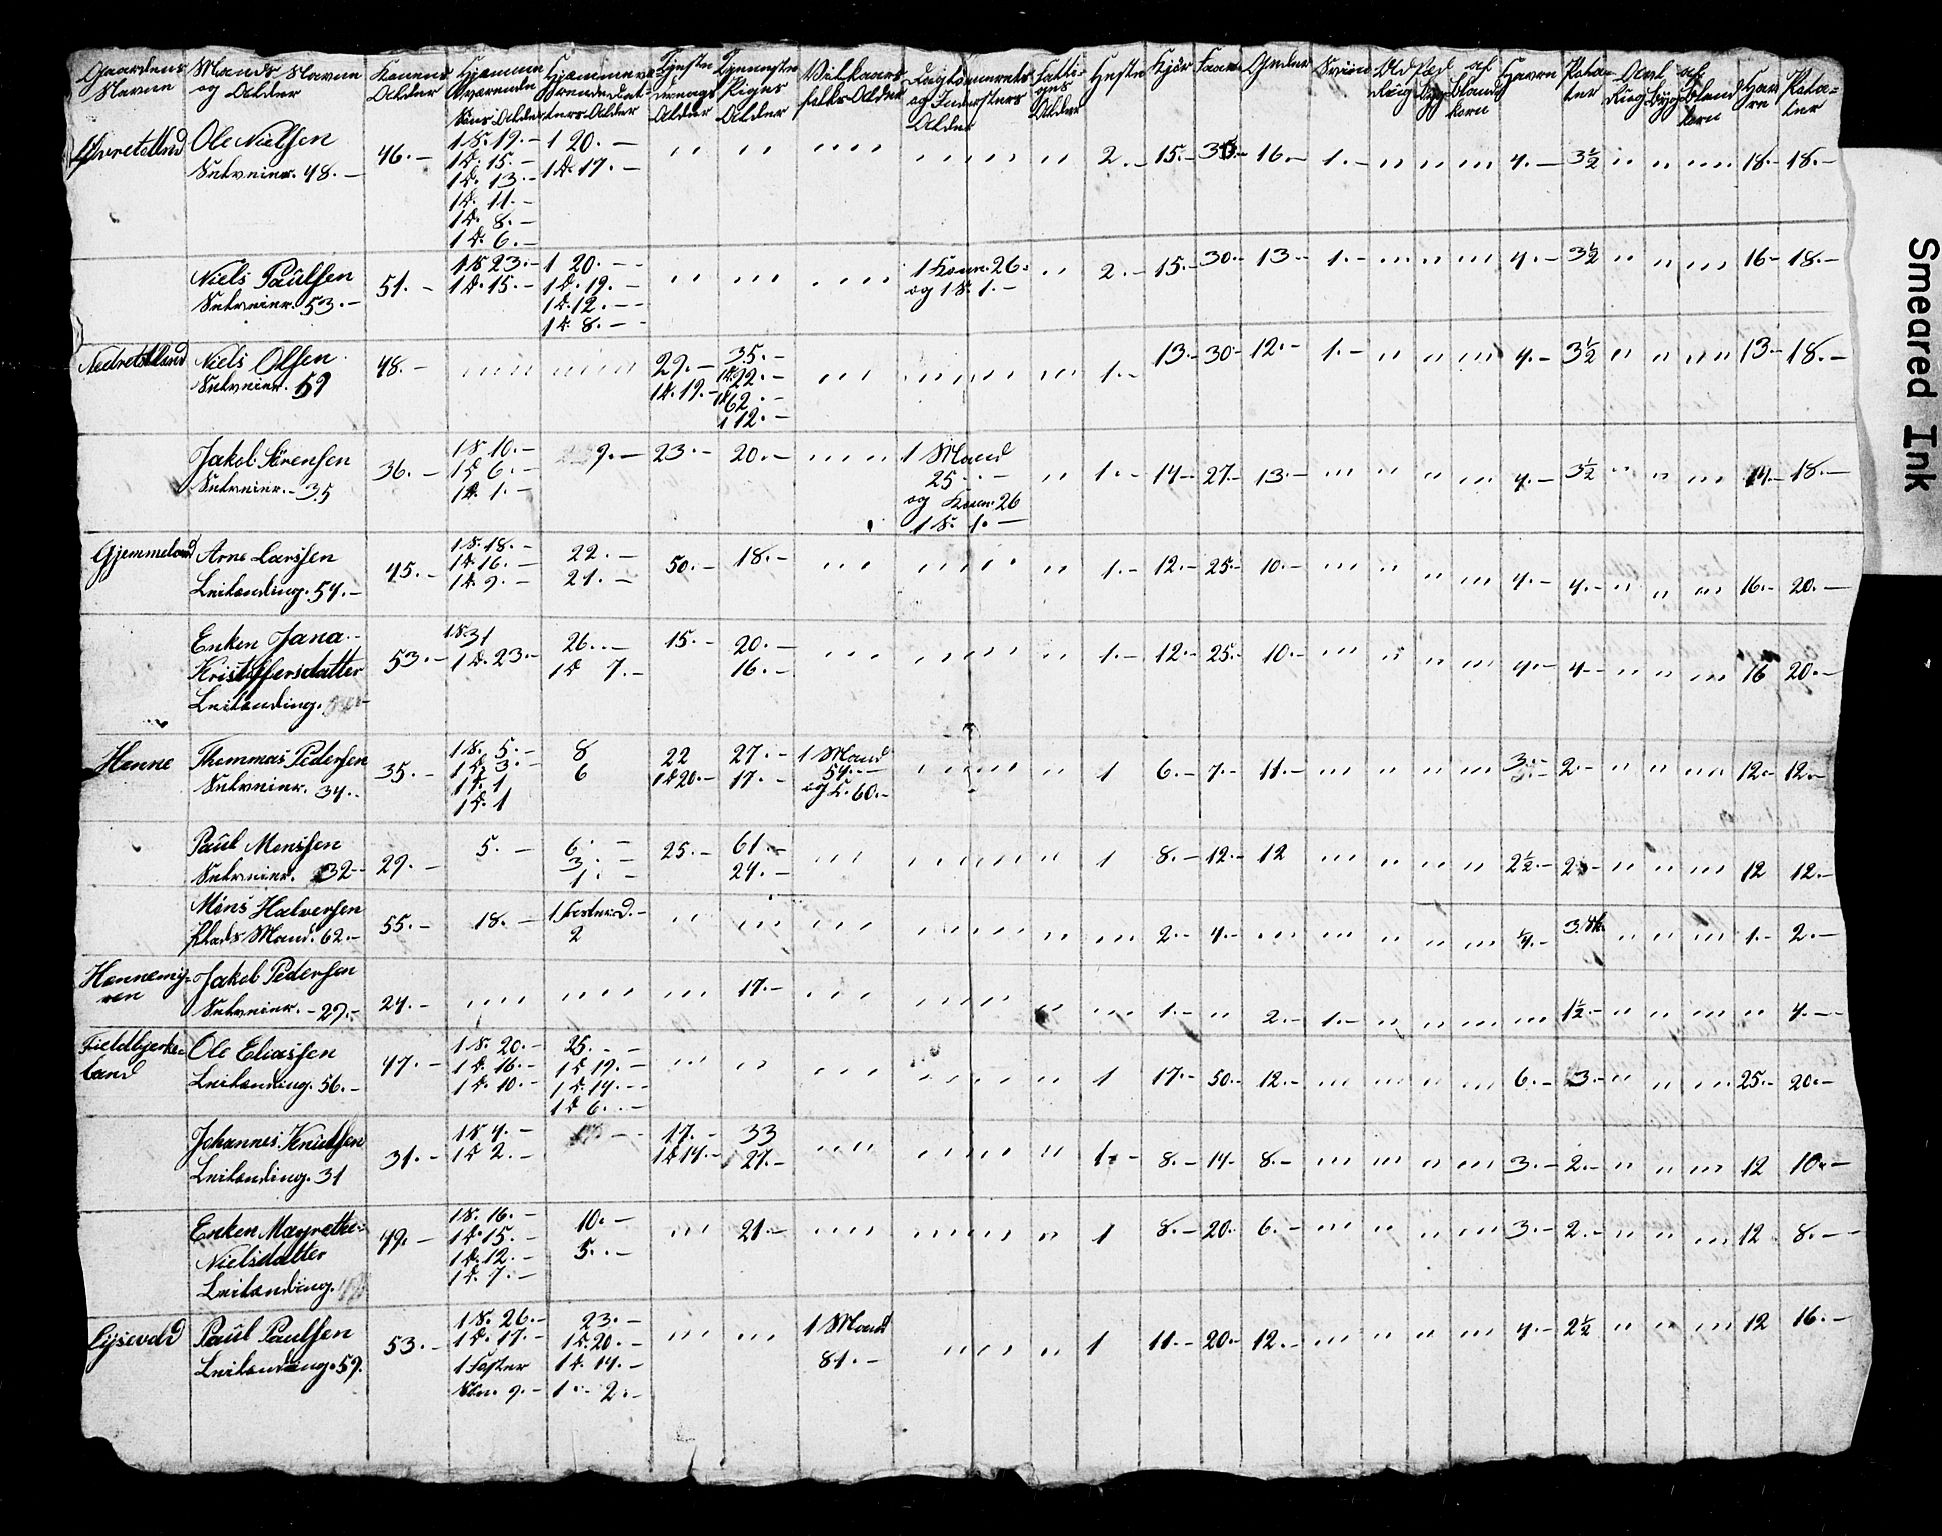 Gaardens Navne | Mands Navne og Alder | Konens Alder | Hjemme værende Søns Alder | Hjemmeværende Datters Alder | Tjeste drengs Alder | Tjenneste Piges Alder | Vilkaars folks Alder | Alder | Fattiges Alder | Heste | Kjør | Faar | Gjeder | Sviin | Rug | Byg | af blandkorn | Havre | Potater | Rug | byg | af bland korn | Havre | Potater
Ole Nielsen | 46.- | 1 S. 19.- | 1 20.- | 2.- | 15.- | 35.- | 16.- | 1.- | 4.- | 3½ | 18.- | 18.-
Selveier. 48.- | 1 d. 15.- | 1 d. 17.-
1 d. 13.-
1 d. 11.-
1 d. 8.-
1 d. 6.-
Niels Paulsen | 51.- | 1 S 23.- | 1 20.- | 1 Kone. 26. | 2.- | 15.- | 30.- | 13.- | 1.- | 4.- | 3½ | 16.- | 18.-
Selveier. 53.- | 1 d. 15.- | 1 d. 19.- | og 1 S. 1.-
1 d. 12.-
1 d. 8.-
Niels Olsen | 48.- | 29.- | 35.- | 1.- | 13.- | 30.- | 12.- | 1.- | 4.- | 3½ | 13.- | 18.-
Selveier. 59 | 1 d. 19.- | 1 d. 22.-
62.-
1 12.-
Jakob Sørensen | 36.- | 1 S 10.- | 9.- | 23.- | 20.- | 1 Mand | 1.- | 14.- | 27.- | 13.- | 4.- | 3½ | 14.- | 18.-
Selveier.- 35 | 1 d 6.- | 25.-
1 d. 1.- | og Kone. 26
1 S. 1.-
Gjemmeland | Arne Larssen | 45.- | 1 S. 18.- | 22.- | 50.- | 18.- | 1.- | 12.- | 25.- | 10.- | 4.- | 4.- | 16.- | 20.-
Leilending. 54.- | 1 d. 16.- | 21.-
1 d. 9.-
Enken Jana | 53.- | 1 S. 31 | 26.- | 15.- | 20.- | 1.- | 12.- | 25.- | 10.- | 4.- | 4.- | 16 | 20.-
Kristoffersdatter | 1 d. 23.- | 1 d 7.- | 16.-
Leilending.
Henne | Thommas Pedersen | 35.- | 1 S. 5.- | 8 | 22 | 27.- | 1 Mand | 1 | 6.- | 7.- | 11.- | 3.- | 2.- | 12.- | 12.-
Selveier. 34.- | 1 d. 3.- | 6 | 1 d 20.- | 17.- | 54.-
1 d. 1 | og K. 60.-
1 d. 1
Paul Monssen | 29.- | 5.- | 6.- | 25.- | 61.- | 1 | 8.- | 12.- | 12 | 2½.- | 2.- | 12 | 12.-
Selveier. 32.- | 3.- | 29.-
1.-
Mons Halversen | 55.- | 18.- | 1 Foster. D.- | 2.- | 4.- | ¼.- | 1.- | 2.-
Plads Mand. 62.- | 2
Hennemyren | Jakob Pedersen | 24.- | 17.- | 1.- | 2.- | 1.- | 1½.- | 4.-
Selveier.- 29.-
Fieldbjerkeland | Ole Eliassen | 47.- | 1 S. 20.- | 25.- | 1 | 17.- | 50.- | 12.- | 6.- | 3.- | 25.- | 20.-
Leilending. 56.- | 1 d. 16.- | 1 d 19.-
1 d. 10.- | 1 d. 14.-
1 d 6.-
Johannes Knudsen | 31.- | 1 S 4.- | 17.- | 33 | 1.- | 8.- | 14.- | 8.- | 3.- | 2.- | 12 | 10.-
Leilending. 31 | 1 d 2.- | 1 d 14.- | 27.-
Enken Magrethe | 49.- | 1 S. 16.- | 10.- | 21.- | 1 | 8.- | 20.- | 6.- | 3.- | 2.- | 12 | 8.-
Nielsdatter | 1 d. 15.- | 5.-
Leilending. | 1 d. 12.-
1 d. 7.-
Paul Paulsen | 53.- | 1 S. 26.- | 23.- | 1 Mand | 1 | 11.- | 20.- | 12.- | 4.- | 2½ | 12 | 16.-
Leilending. 59. | 1 d. 17.- | 1 d. 20.- | 81.-
1 Foster | 1 d. 14.-
Søn. 9.- | 1.- 2.-
Smeared Ink